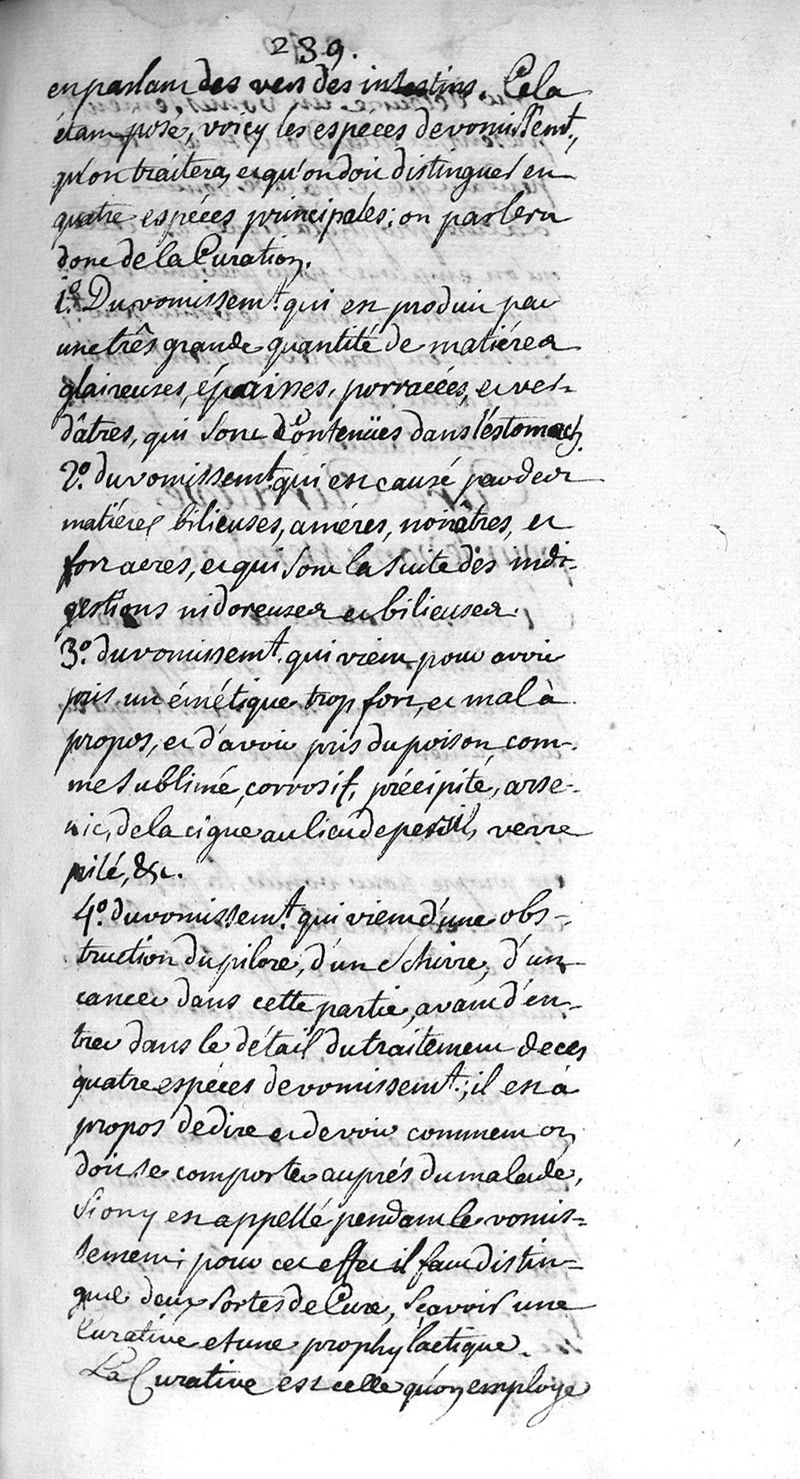 239.
en parlant des vers des intestins. Cela
étant posé, voicy les espéces de vomissemt.,
qu'on traitera, et qu'on doit distinguer en
quatre espéces principales; on parlera
donc de la Curation.
1.º Du vomissemt. qui est produit par
une três grande quantité de matiéres
glaireuses, épaisses, porracées, et ver-
dâtres, qui sont Contenües dans l'éstomach.
2.º du vomissemt. qui est causé par des
matiéres bilieuses, améres, noirâtres, et
fort acres, et qui sont la suite des indi-
gestions nidoreuses et bilieuses.
3.º du vomissemt. qui vient pour avoir
pris un émétique trop fort, et mal à
propos, et d'avoir pris du poison, com-
me sublimé, corrosif, précipité, arse-
nic, de la cigue au lieu de persil, verre
pilé, &c.
4.º du vomissemt. qui vient d'une obs-
truction du pilore, d'un Schirre, d'un
cancer dans cette partie, avant d'en-
trer dans le détail du traitement de ces
quatre espéces de vomissemt.; il est à
propos de dire et de voir comment on
doit se comporter auprés du malade,
si on y est appellé pendant le vomis-
sement; pour cet effet il faut distin-
guer deux sortes de Cure, sçavoir une
Curative et une prophylactique.
La Curative est celle qu'on employe